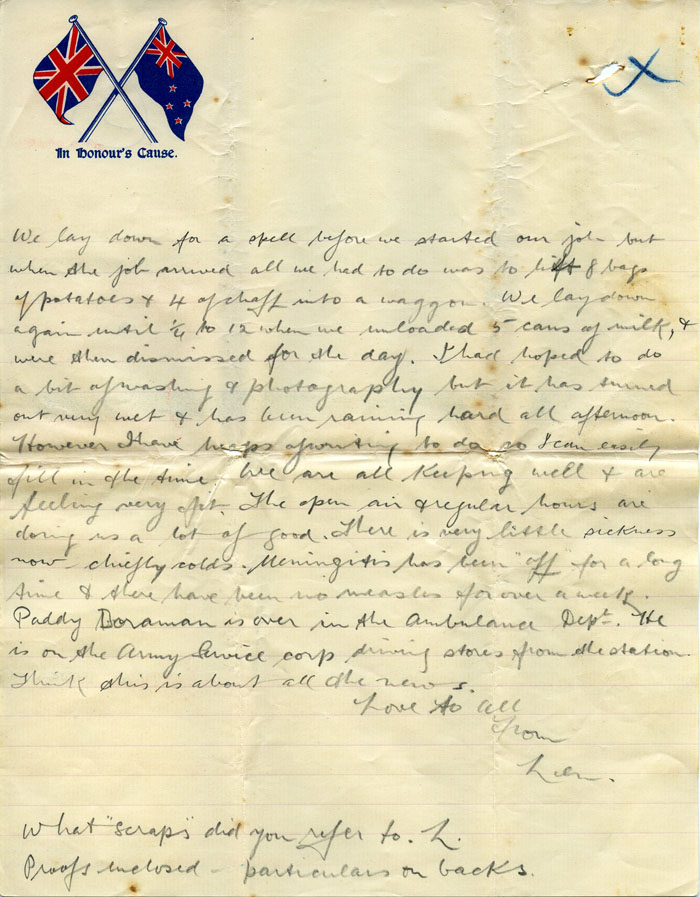 In Honour's Cause.
X
We lay down for a spell before we started our job but
when the job arrived all we had to do was to lift 8 bags
of potatoes & 4 of chaff into a waggon. We lay down
again until ¼ to 12 when we unloaded 5 cans of milk, &
were then dismissed for the day. I had hoped to do
a bit of washing & photography but it has turned
out very wet & has been raining hard all afternoon.
However I have heaps of writing to do so I can easily
fill in the time. We are all keeping well & are
feeling very fit. The open air & regular hours are
doing us a lot of good. There is very little sickness
now - chiefly colds. Meningitis has been "off" for a long
time & there have been no measles for over a week.
Paddy Boraman is over in the Ambulance Dept. He
is on the Army Service corp driving stores from the station.
Think this is about all the news.
Love to all
from
Len.
What "scraps" did you refer to. L.
Proofs enclosed - particulars on backs.